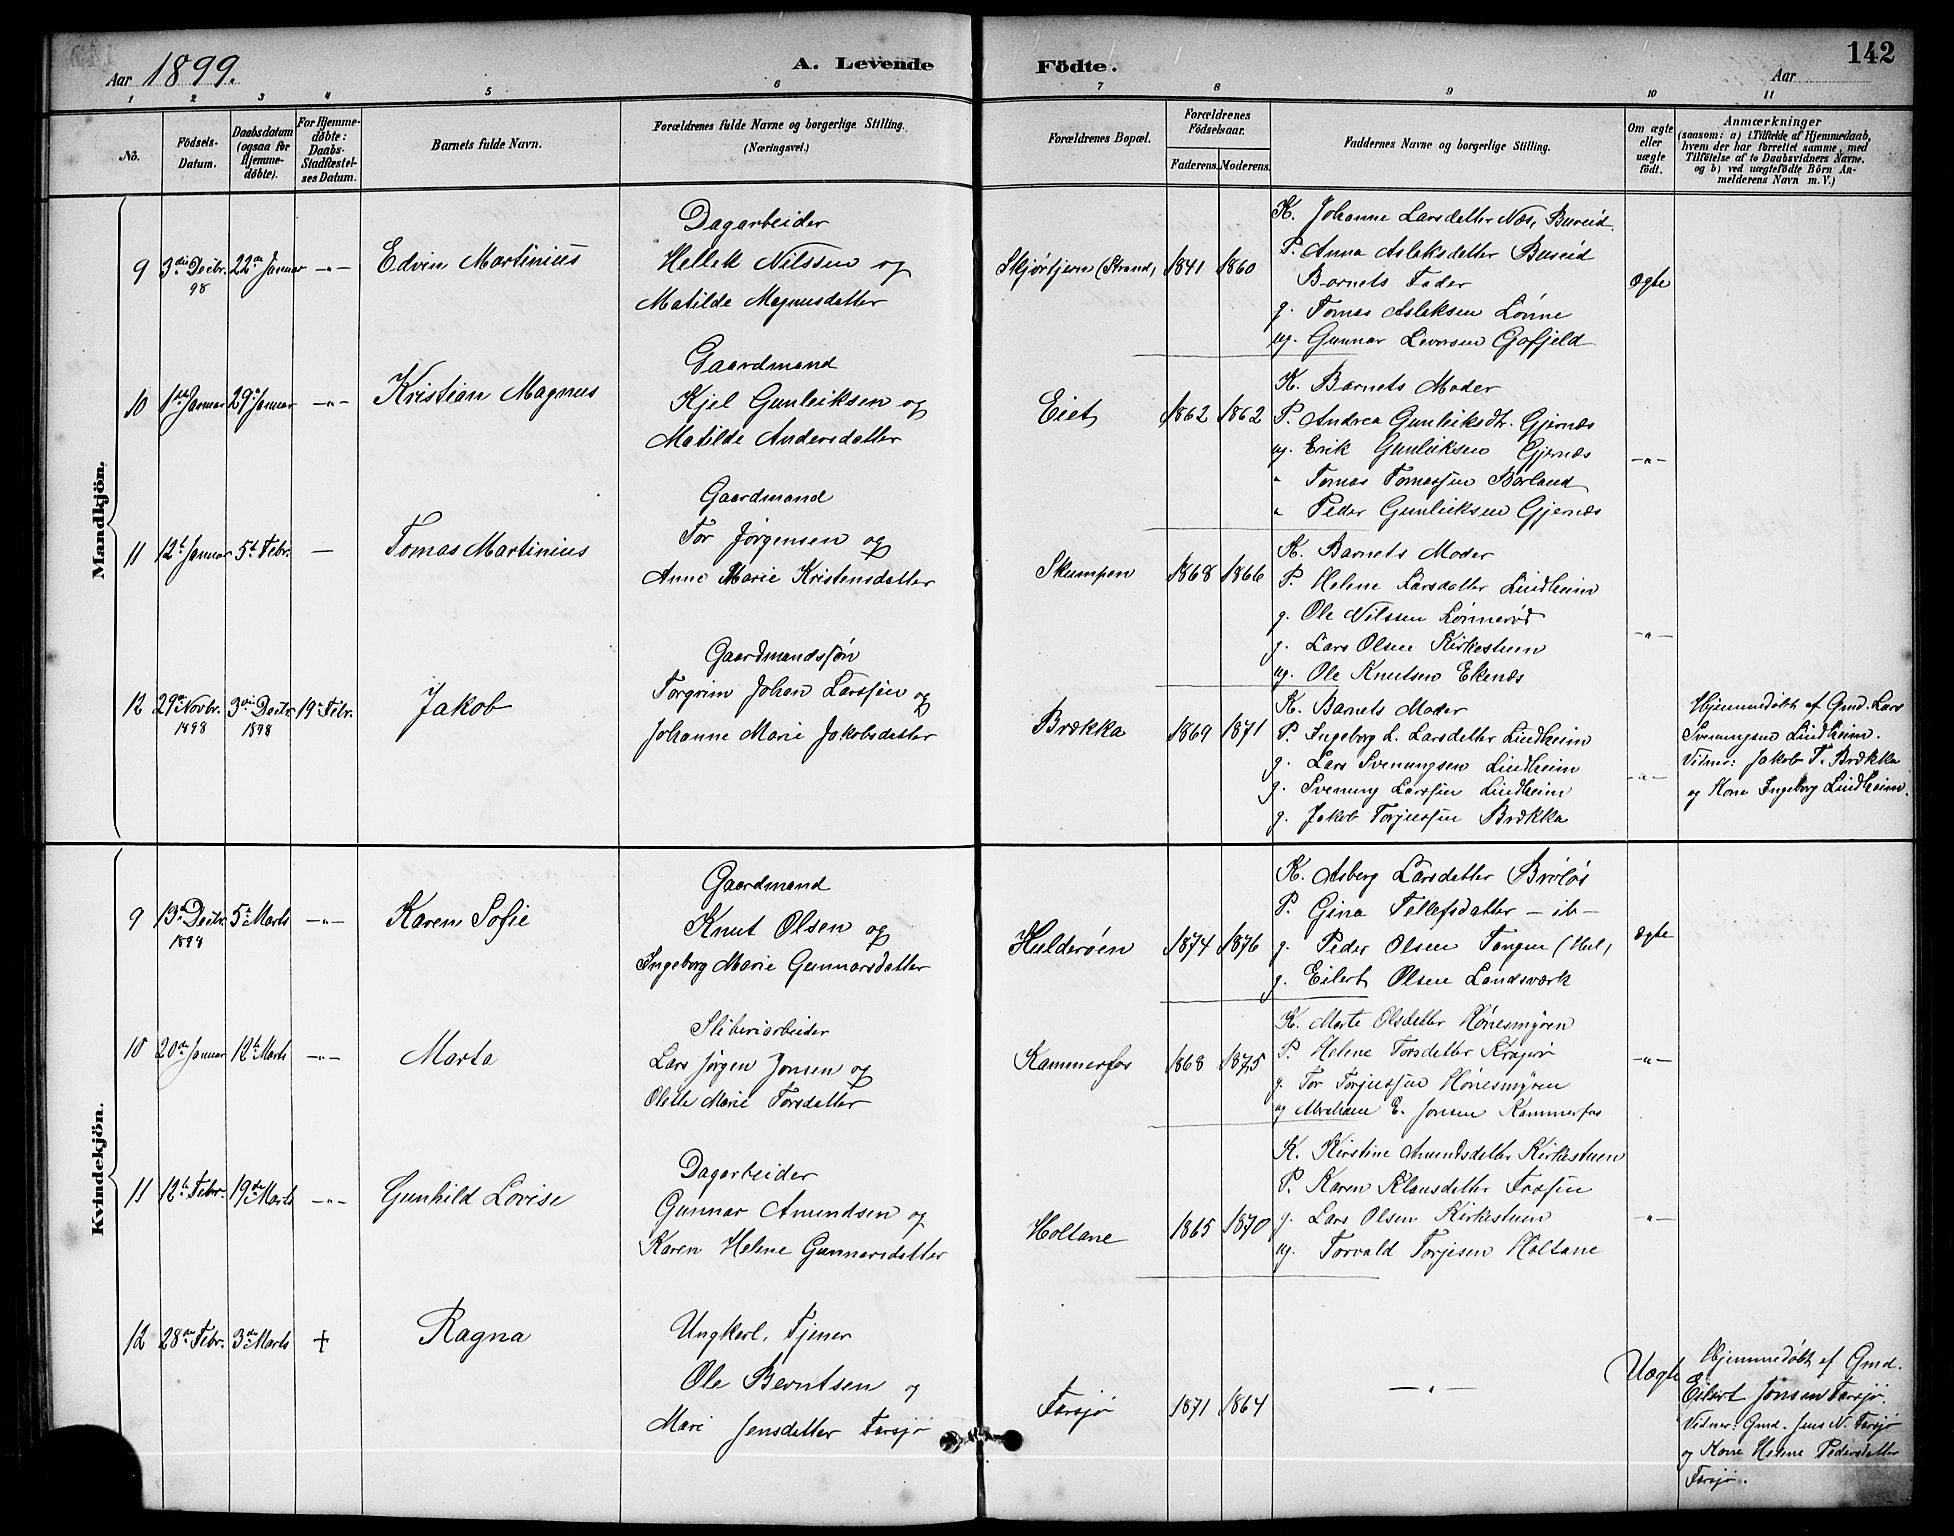 Aar 1899.
A. Levende
Födte.
142
Aar
1 2 3 4 5 6 7 8 9 10 11
No.
Födsels-
Datum.
Daabsdatum
(ogsaa for
Hjemme-
døbte).
For Hjemme-
døbte:
Daabs-
Stadfæstel-
ses Datum.
Barnets fulde Navn.
Forældrenes fulde Navne og borgerlige Stilling.
(Næringsvei.)
Forældrenes Bopæl.
Forældrenes
Fødselsaar.
Faderens. Moderens.
Faddernes Navne og borgerlige Stilling.
Om ægte
eller
uægte
født.
Anmærkninger
(saasom: a) i Tilfælde af Hjemmedaab,
hvem der har forrettet samme, med
Tilføielse af to Daabsvidners Navne.
og b) ved uægtefødte Börn An-
melderens Navn m. V.)
Mandkjön.
9 3die Decbr. 98 22de Januar -"- Edvin Martinius
Dagarbeider
Hellek Nilssen og
Matilde Magnusdatter
Skjørtjern (Strand) 1841 1860
K. Johanne Larsdatter Næs, Bureid.
P. Anna Aslaksdatter Bureid
Barnets Fader
g. Tomas Aslaksen Lønne
ug. Gunnar Gofjeld
Ægte
10 1ste Januar 29de Januar -"- Kristian Magnus
Gaardmand
Kjel Gunleiksen og
Matilde Andersdatter
Eiet 1862 1862
K. Barnets Moder
P. Andrea Gunleiksdtr. Gjernæs
ug. Erik Gunleiksen Gjernæs
" Tomas Tomassen Barland
" Peder Gunleiksen Gjernæs
-"-
11 12te Januar 5te Febr. — Tomas Martinius
Gaardmand
Tor Jørgensen og
Anne Marie Kristensdatter
Skumpen 1868 1866
K. Barnets Moder
P. Helene Larsdatter Lindheim
g. Ole Nilssen Lønnerød
g. Lars Olsen Kirkestuen
ug. Ole Knutsen Ekenæs
-"-
12 29de Novbr. 1898 3die Decbr. 1898 19de Febr. Jakob
Gaardmandssøn
Torgrim Johan Larssen og
Johanne Marie Jakobsdatter
Brækka 1869 1871
K. Barnets Moder
P. Ingeborg L. Larsdatter Lindheim
g. Lars Svenungsen Lindheim
g. Svenung Larssen Lindheim
g. Jakob Torjussen Brækka
-"-
Hjemmedøbt af Gmd. Lars
Svenungsen Lindheim.
Vidner: Jakob T. Brækka
og Kone Ingeborg Lindheim.
Kvindekjön.
9 13de Decbr. 1898 5te Marts -"- Karen Sofie
Gaardmand
Knut Olsen og
Ingeborg Marie Gunnarsdatter
Hulderøen 1874 1876
K. Asberg Larsdatter Brøløs
P. Gina Tellefsdatter - ib -
g. Peder Olsen Tangen (Hel)
g. Eilert Olsen Landsværk
Ægte
10 20de Januar 12te Marts -"- Marta
Sliberiarbeider
Lars Jørgen Jonsen og
Olette Marie Torsdatter
Kammerfos 1868 1875
K. Marte Olsdatter Hønesmyren
P. Helene Torsdatter Kragerø
g. Tor Torjussen Hønesmyren
ug Abraham E. Jonsen Kammerfos
-"-
11 12te Febr. 19de Marts -"- Gunhild Lovise
Dagarbeider
Gunnar Amundsen og
Karen Helene Gunnarsdatter
Holtane 1865 1870
K. Kirstine Amundsdatter Kirkestuen
P. Karen Klausdatter Fossen
g. Lars Olsen Kirkestuen
ug. Torvald Torjesen Holtane
-"-
12 28de Febr. 3die Marts † Ragna
Ungkarl, Tjener
Ole Berntsen og
Mari Jensdatter Farsjø
Farsjø 1871 1864
-"-
Uægte
Hjemmedøbt af Gmd.
Eilert Jonsen Farsjø.
Vidner: Gmd. Jens N. Farsjø
og Kone Helene Pedersdatter
Farsjø.